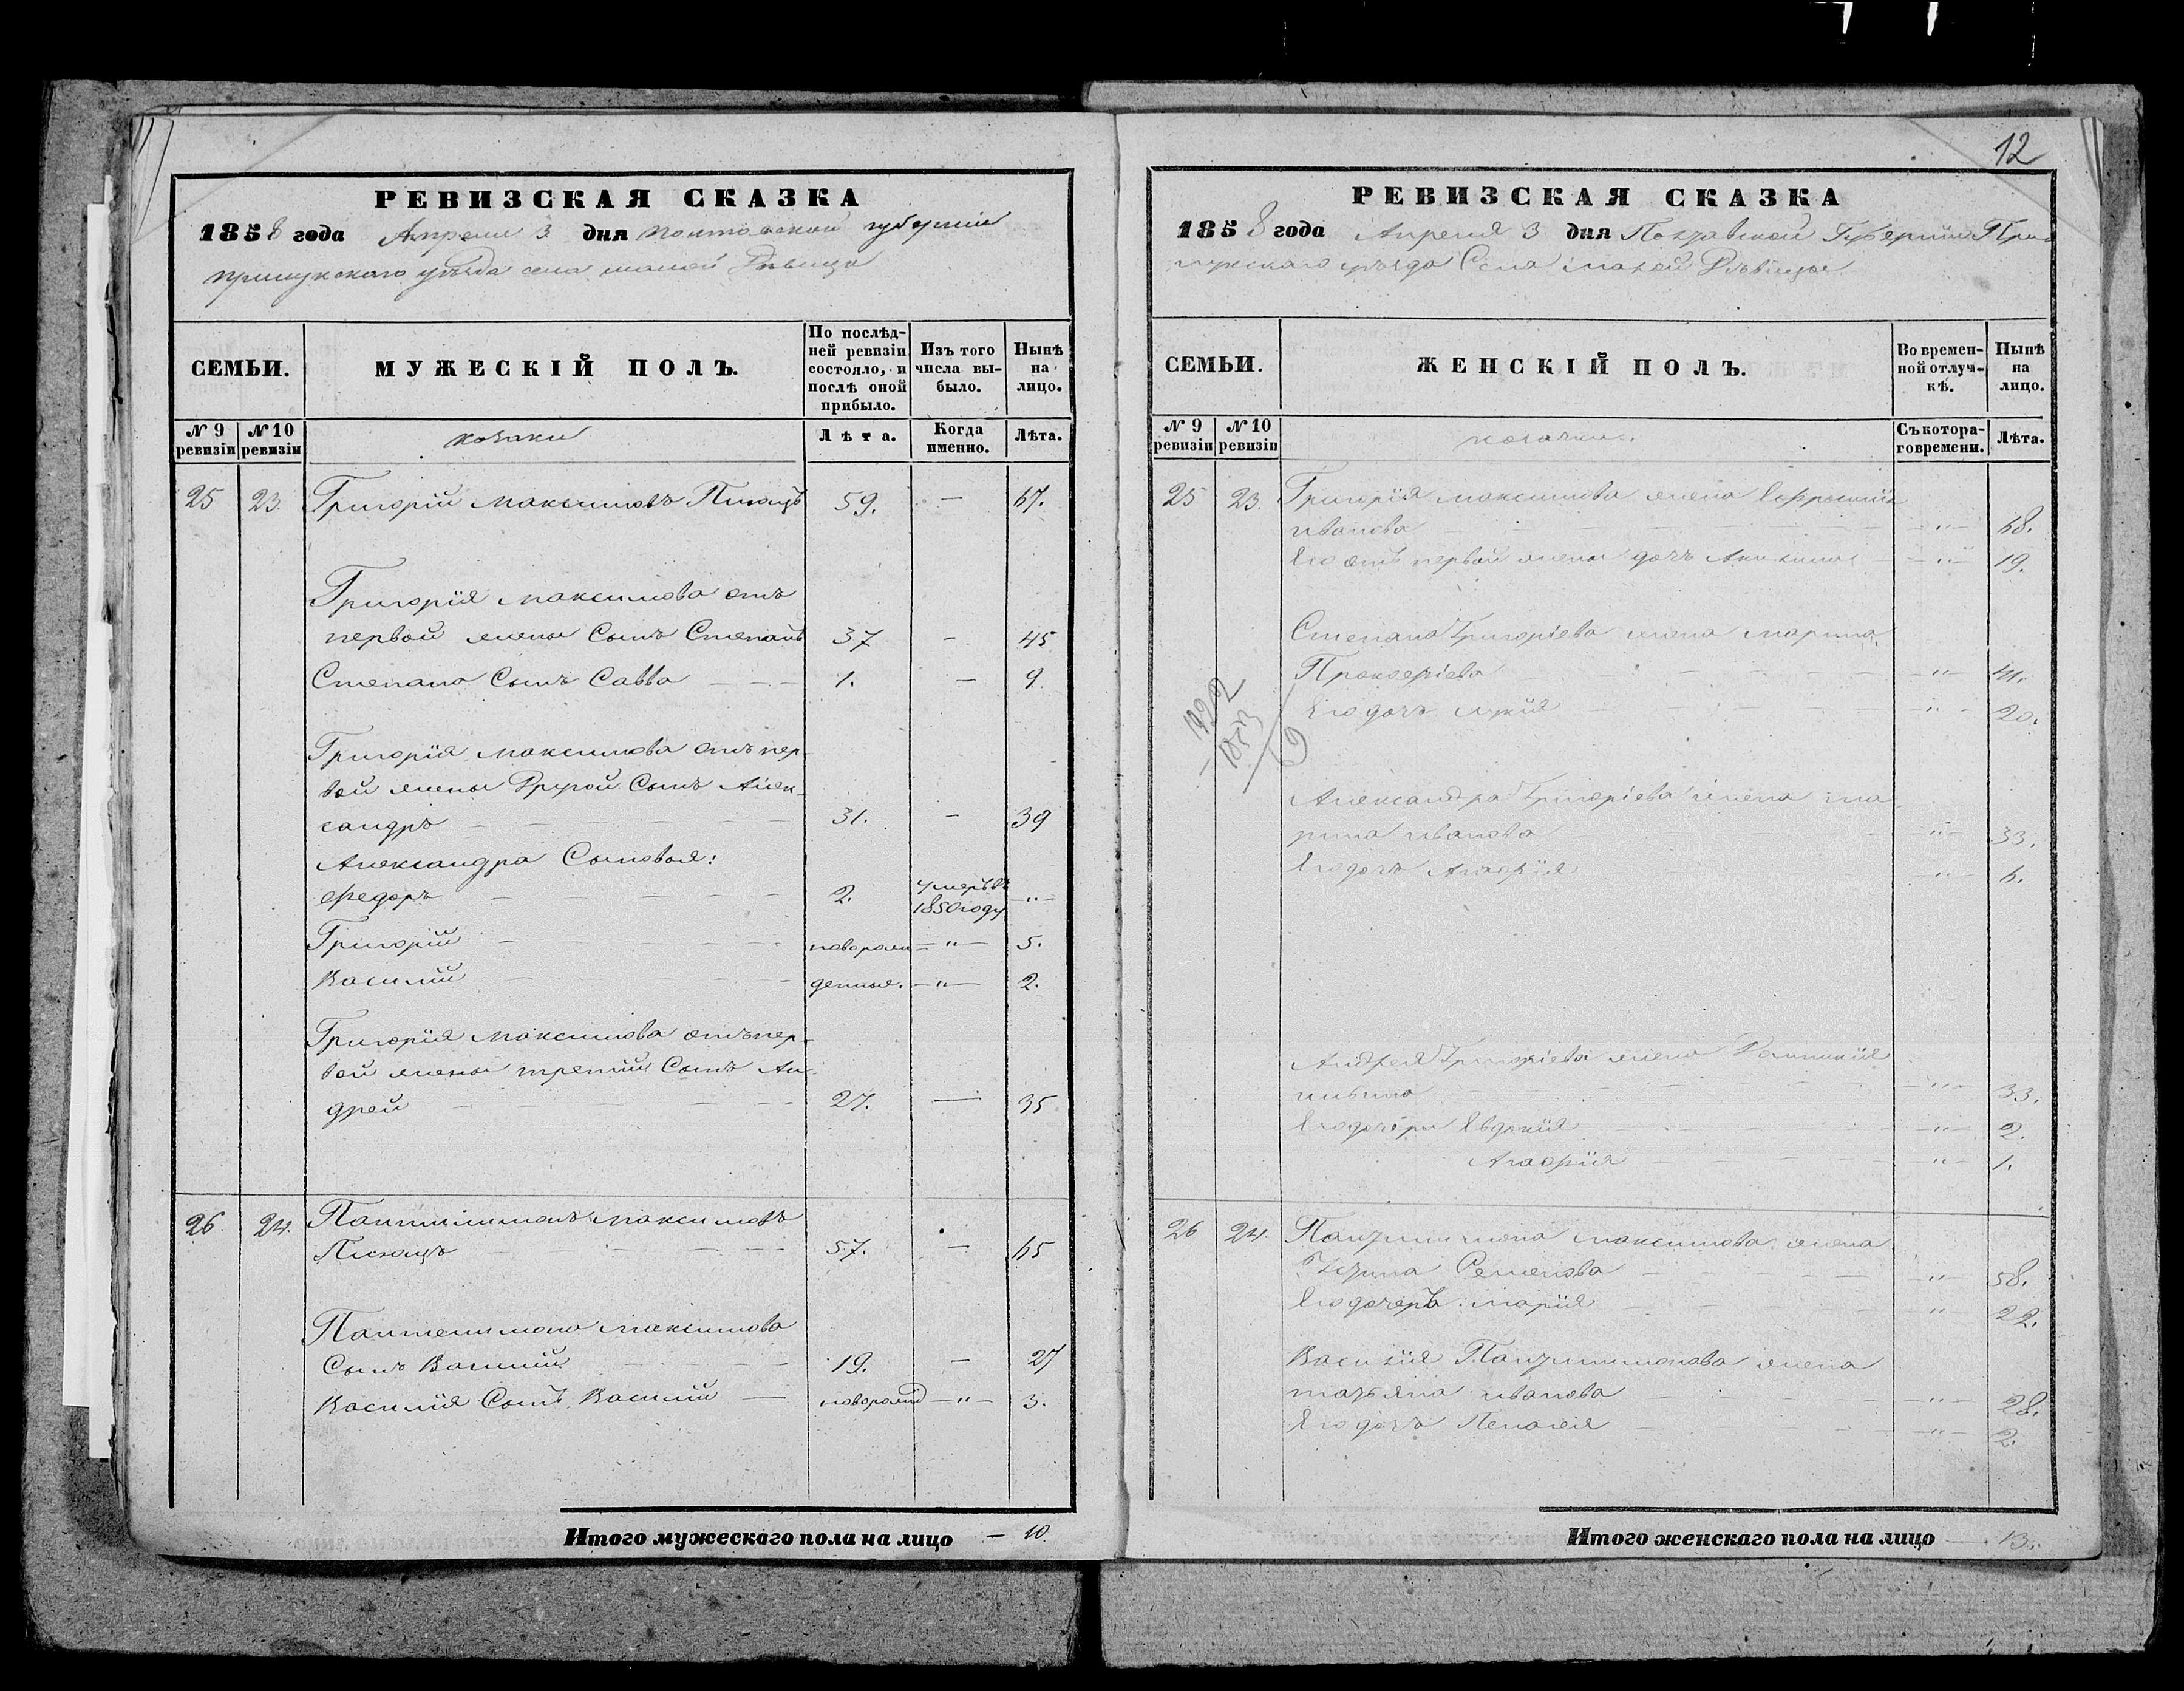 12
РЕВИЗСКАЯ СКАЗКА
1858 года Апреля 3 дня Полтавской губернии
Прилукского уѣзда села малой Дѣвицы
СЕМЬИ.
МУЖЕСКІЙ ПОЛЪ.
По послѣдней ревизіи состояло, и послѣ оной прибыло.
Изъ того числа выбыло.
Нынѣ на лицо.
№ 9 ревизіи
№ 10 ревизіи
козаки
Лѣта.
Когда именно.
Лѣта.
25 23. Григорій Максимовъ 59. — 67.
Григорія Максимова отъ
первой жены Сынъ Степанъ 37 — 45
Степана Сынъ Савва — 1. — 9.
Григорія Максимова отъ пер-
вой жены Другой Сынъ Алек-
сандръ — 31. — 39
Александра Сыновья:
Федоръ — 2. умеръ въ 1850 году — " —
Григорій — новорож — " — 5.
Василій — денные. — " — 2.
Григорія Максимова отъ пер-
вой жены третій Сынъ Ан-
дрей — 27. — 35
26. 24. Пантилимонъ Максимовъ
57. — 65
Пантелимона Максимова
Сынъ Василій — 19. — 27
Василія Сынъ Василій — новорожд — " — 3.
Итого мужескаго пола на лицо — 10.
РЕВИЗСКАЯ СКАЗКА
1858 года Апреля 3 дня Полтавской Губерніи При-
лукскаго уѣзда Села малой Дѣвицы
СЕМЬИ.
ЖЕНСКІЙ ПОЛЪ.
Во временной отлучкѣ.
Нынѣ на лицо.
№ 9 ревизіи
№ 10 ревизіи
козачки.
Съ котораго времени.
Лѣта.
25 23. Григорія Максимова жена Ефросинія
иванова — " — 68.
Его отъ первой жены дочь Акилина — " — 19.
Степана Григоріева жена Марина
Прокофіева — " — 41.
Его дочь Лукія — " — 20.
Александра Григоріева жена ма-
рина иванова — " — 33.
Его дочь Агафія — " — 6.
Андрея Григоріева жена
— " — 33.
Его дочери Евдокія — " — 2.
Агафія — " — 1.
26 24. Пантилимона Максимова жена
Семенова — " — 58.
Его дочерь Марія — " — 22.
Василія Пантилимонова жена
татьяна иванова — " — 28.
Его дочь Пелагія — " — 2.
Итого женскаго пола на лицо — 13.